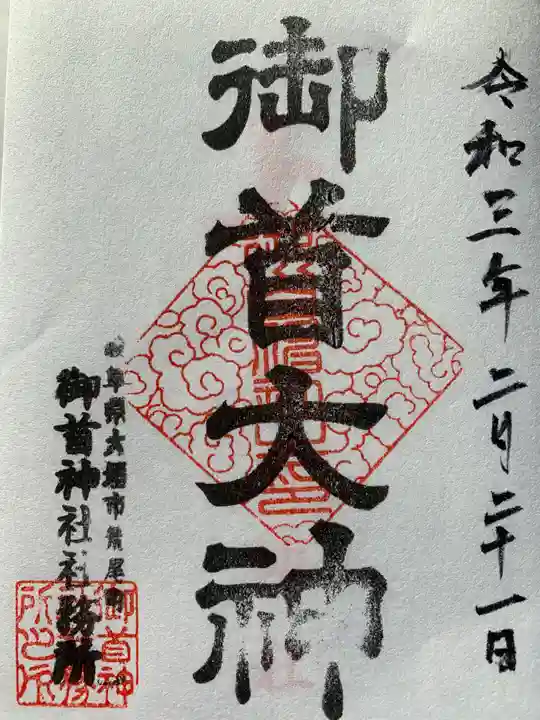 令和三年二月二十一日
御首大神
岐阜県大垣市荒尾町
御首神社社務所
御首神
社務
所之印